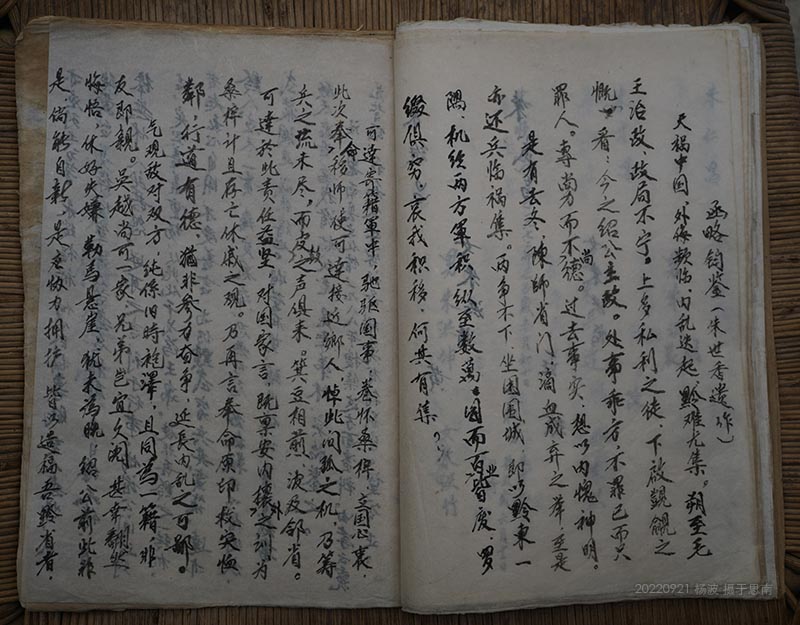 函略钧鉴（朱世香遗作）
天祸中国，外侮频临，内乱迭起，黔难尤集。朔至毛
王治政，政局不宁。上多私利之徒，下启觊觎之
慨。看：今之绍公主政。处事乖方，不罪己而只
罪人。专尚力而不尚德。过去事实，想以内愧神明。
是有去冬，陈师省门，滴血成弃之举，至是
亦还兵临祸集。两争不下，坐困围城，即以黔东一
隅，机经两方军积，纵至数万。因而百业皆废，罗
掘俱穷，哀我积移，何其有集？
可达寄籍军中，驰驱国事，卷怀桑梓，主国心衷，
此次奉命移师，使可达接近乡人，悼此间孤之机，乃筹
兵之疏未尽，而皮之声俱来。箕豆相煎，波及邻省。
可达於此责任益坚，对国家言，既稟安内攘外之训，为
桑梓计且存亡休戚之观。乃再言奉命原印救灾恤
鄰，行道有德，猶非参方奋争，延長内乱之可鄙。
乞观敌对双方，纯係旧時袍澤，且同為一籍，非
友即親。吴越尚可一家，兄弟岂宜久阋，甚幸翻然
悔悟，休好失嫌，勒馬悬崖，犹未為晚，绍公前此非
是，倘能自新，是應协力拥护，皆以造福吾黔省者，
20220921 杨波 摄于思南